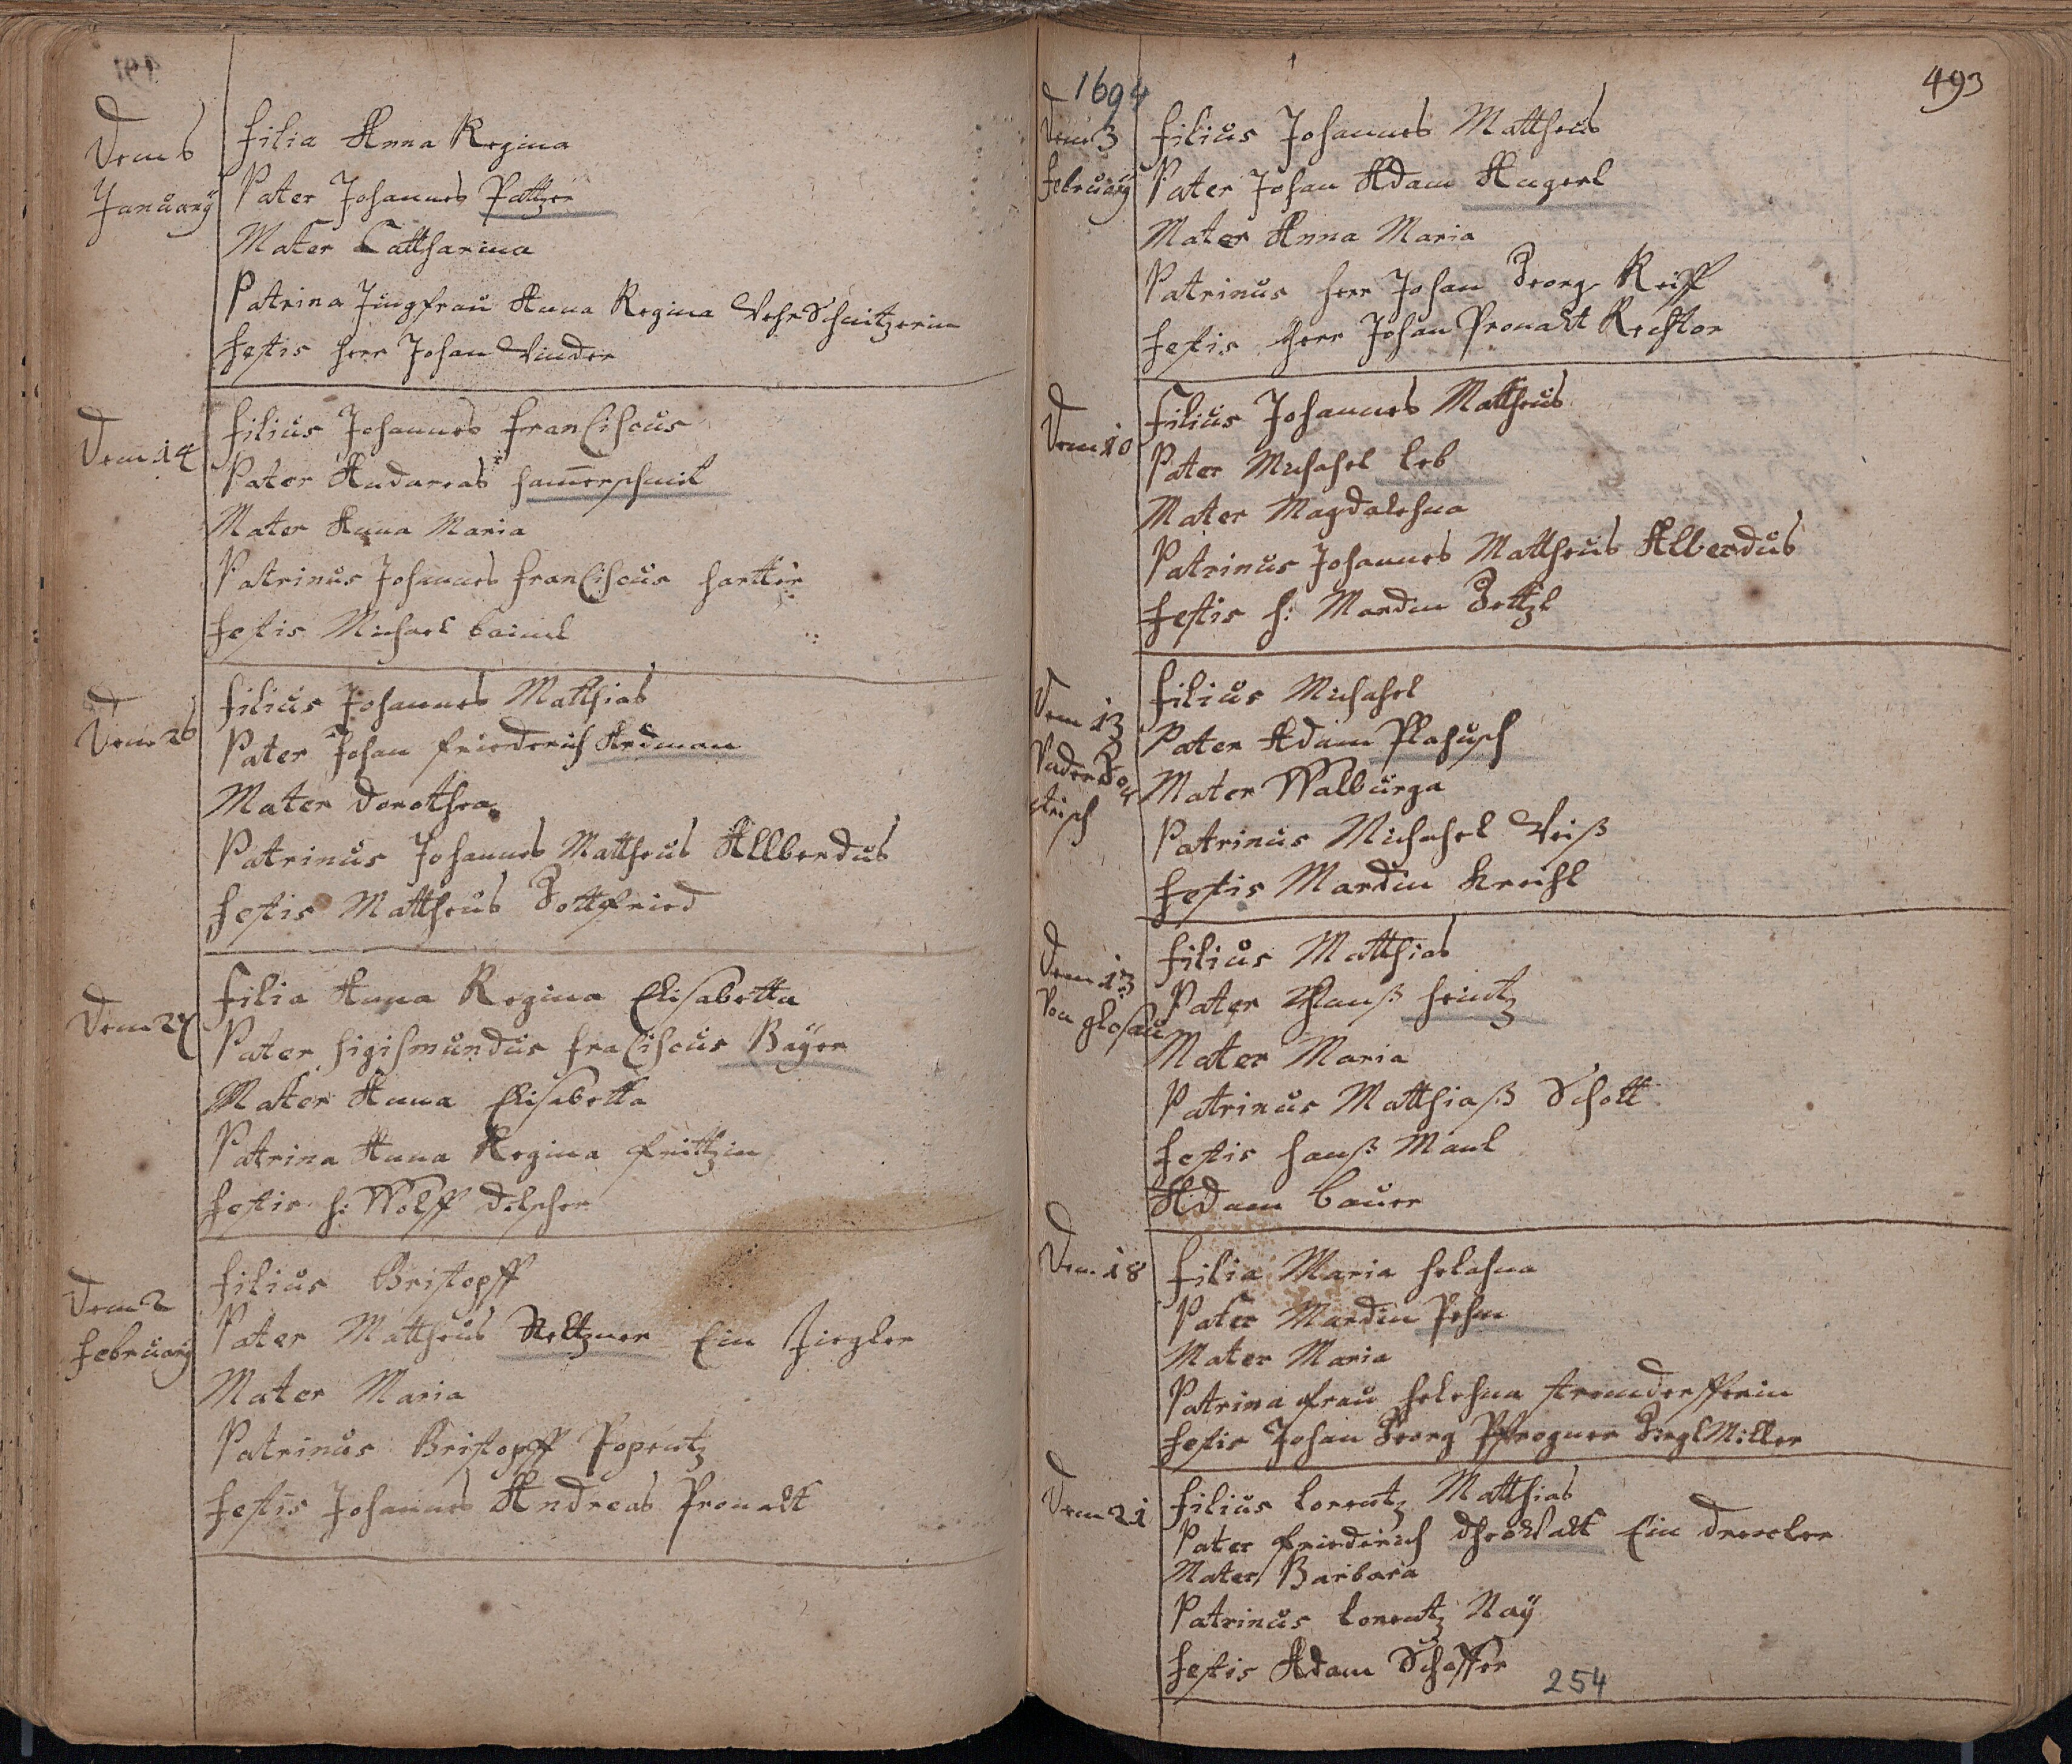 Dem 6
January
filia Anna Regina
Pater Johannes Pattzer
Mater Cattharina
Patrina Jungfrau Anna Regina VehrSchnitzerin
testis herr Johan Vinder
Dem 14
filius Johannes franciscus
Pater Andareas ham̄erschmit
Mater Anna Maria
Patrinus Johannes franciscus hartter
testis Michael baiml
Dem 26
filius Johannes Matthias
Pater Johan friederich Ardman
Mater Dorothea
Patrinus Johannes Mattheus Allberdus
testis Mattheus Gottfried
Dem 27
filia Anna Regina Elisabetta
Pater sigismundus fraciscus Bayer
Mater Anna Elisabetta
Patrina Anna Regina frittzin
testis h: Wolff Delscher
Dem 2
february
filius Cristopff
Pater Mattheus Steltzner Ein Ziegler
Mater Maria
Patrinus Cristopff Poprentz
testis Johannes Andreas Pronalt
1694
493
Dem 3
february
filius Johannes Mattheus
Pater Johan Adam Angerl
Mater Anna Maria
Patrinus herr Johan Georg Reiff
testis herr Johan Pronalt Recktor
Dem 10
filius Johannes Mattheus
Pater Michahel Leb
Mater Magdalehna
Patrinus Johannes Mattheus Alberdus
testis h: Mardin Gottzl
Dem 13
filius Michahel
Pater Adam Plahusch
Mater Walburga
Patrinus Michahel Veiß
testis Mardin Kreihl
Dem 13
Von glosau
filius Matthias
Pater Hanß heintz
Mater Maria
Patrinus Matthiaß Schott
testis hanß Manl
Adam bauer
Dem 18
filia Maria helehna
Pater Mardin Pehm
Mater Maria
Patrina frau helehna stromdorfferin
testis Johan Georg Pfrogner ZieglMiller
Dem 21
filius Lorentz Matthias
Pater friederich Ein Drexler
Mater Barbara
Patrinus Lorentz Nay
testis Adam Scheffer
254